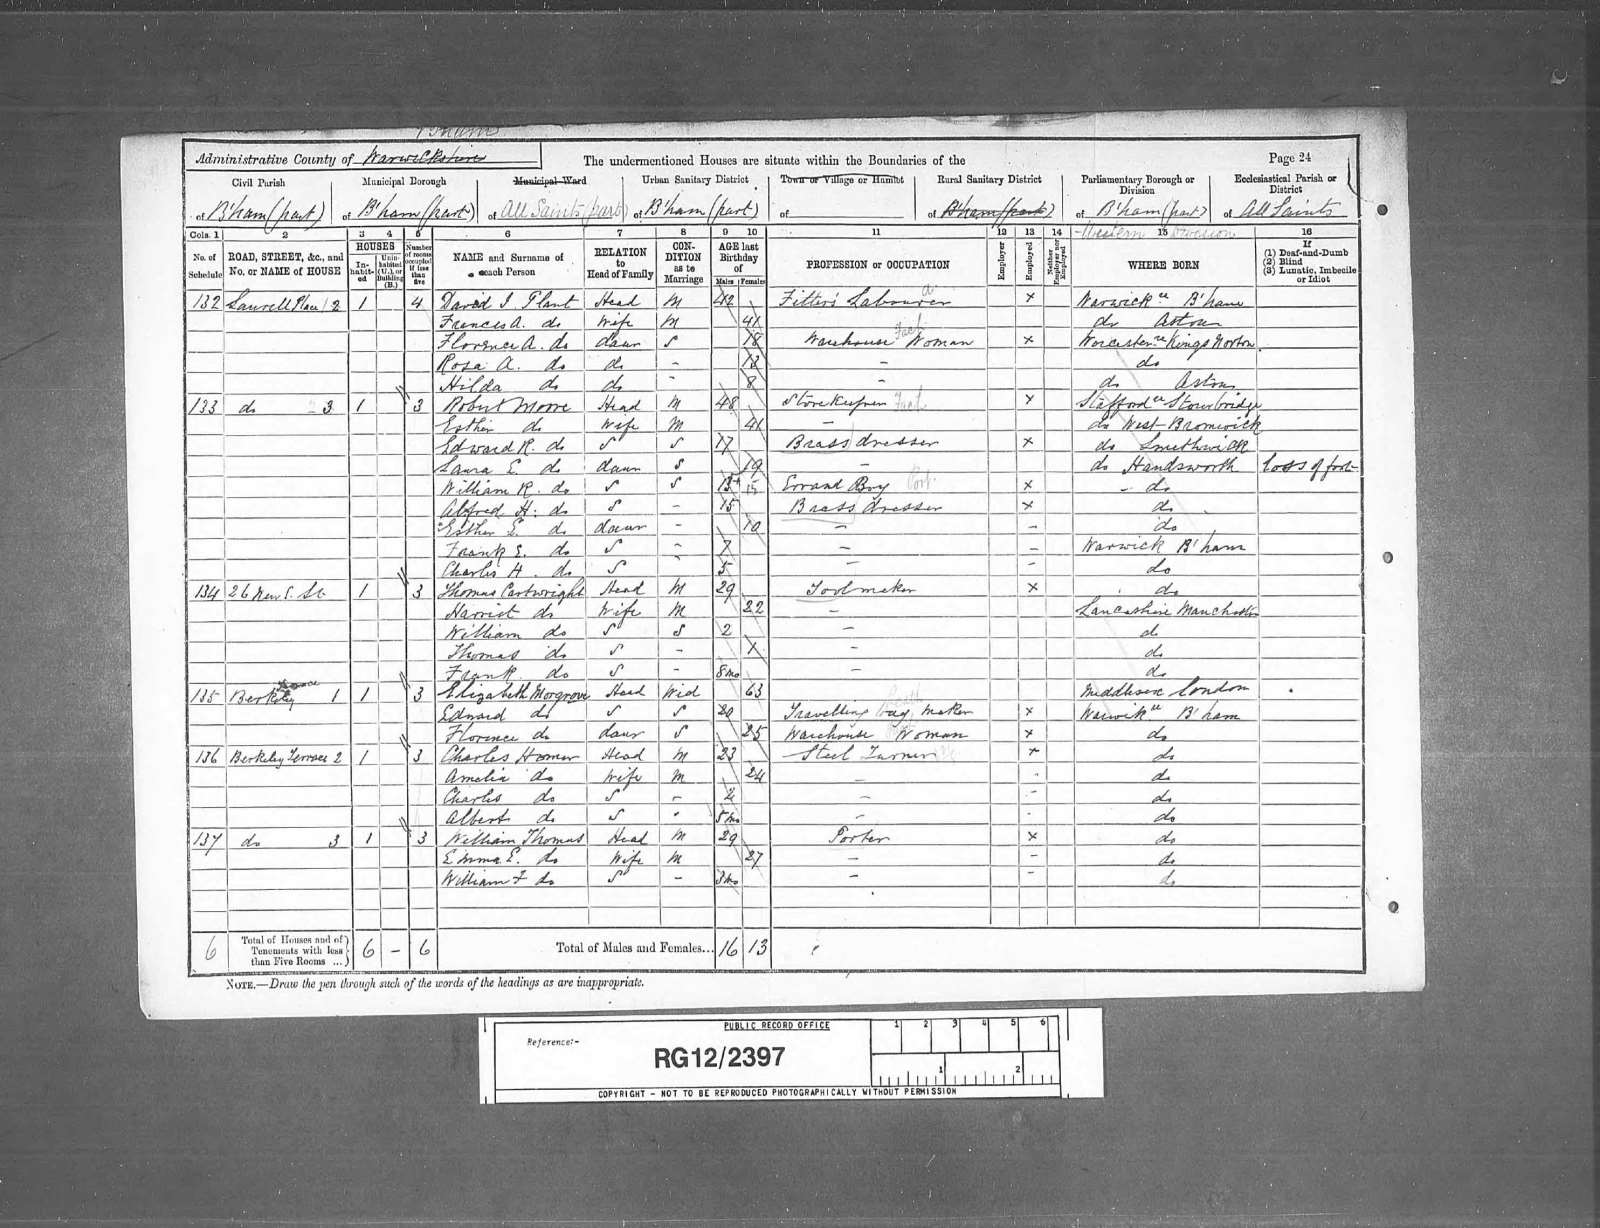 B'ham
Administrative County of Warwickshire The undermentioned Houses are situate within the Boundaries of the Page 24
Civil Parish Municipal Borough Municipal Ward Urban Sanitary District Town or Village or Hamlet Rural Sanitary District Parliamentary Borough or Division Ecclesiastical Parish or District
of B'ham (part) of B'ham (part) of All Saints (part) of B'ham (part) of of B'ham (part) of B'ham (part) of All Saints
Western Division
Cols. 1 2 3 4 5 6 7 8 9 10 11 12 13 14 15 16
No. of Schedule ROAD, STREET, &c., and No. or NAME of HOUSE HOUSES Inhabited Uninhabited (U.), or Building (B.) Number of rooms occupied if less than five NAME and Surname of each Person RELATION to Head of Family CONDITION as to Marriage AGE last Birthday of Males Females PROFESSION or OCCUPATION Employer Employed Neither Employer nor Employed WHERE BORN If (1) Deaf-and-Dumb (2) Blind (3) Lunatic, Imbecile or Idiot
132 Place 2 1 4 David J. Plant Head M 42 Fitter's Labourer x Warwick B'ham
Frances A. do Wife M 41 do Aston
Florence A. do daur S 18 Warehouse Woman x Worcester Kings Norton
Rosa A. do do - 13 - do
Hilda do do - 8 - do Aston
133 do 3 1 3 Robert Moore Head M 48 Storekeeper x Stafford Stourbridge
Esther do Wife M 41 - do West-Bromwick
Edward R. do S S 17 Brass dresser x do Smethwick
Laura E. do daur S 19 - do Handsworth loss of foot
William R. do S S 15 Errand Boy x - do
Alfred H. do S - 15 Brass dresser x do
Esther E. do daur - 10 - - do
Frank E. do S - 7 - - Warwick B'ham
Charles H. do S 5 - - do
134 26 New S. St. 1 3 Thomas Cartwright Head M 29 Toolmaker x do
Harriet do Wife M 22 - Lancashire Manchester
William do S S 2 - do
Thomas do S - - do
Frank do S - 8 mo - do
135 Berkeley Terrace 1 1 3 Elizabeth Morgrove Head Wid 63 Middlesex London
Edward do S S 20 Travelling bag maker x Warwick B'ham
Florence do daur S 25 Warehouse Woman x do
136 Berkeley Terrace 2 1 3 Charles Homer Head M 23 Steel Turner x do
Amelia do Wife M 24 - - do
Charles do S - 2 - - do
Albert do S - 5 mo - - do
137 do 3 1 3 William Thomas Head M 29 Porter x do
Emma E. do Wife M 27 - - do
William F do S - 3 mo - - do
6 Total of Houses and of Tenements with less than Five Rooms ... 6 - 6 Total of Males and Females... 16 13
NOTE.—Draw the pen through such of the words of the headings as are inappropriate.
PUBLIC RECORD OFFICE 1 2 3 4 5 6
Reference:-
RG12/2397 1 2
COPYRIGHT - NOT TO BE REPRODUCED PHOTOGRAPHICALLY WITHOUT PERMISSION